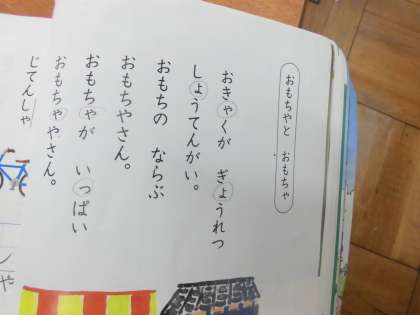 おもちやと おもちゃ
おきゃくが ぎょうれつ
しょうてんがい。
おもちの ならぶ
おもちやさん。
おもちゃが いっぱい
おもちゃやさん。
じてんしゃ